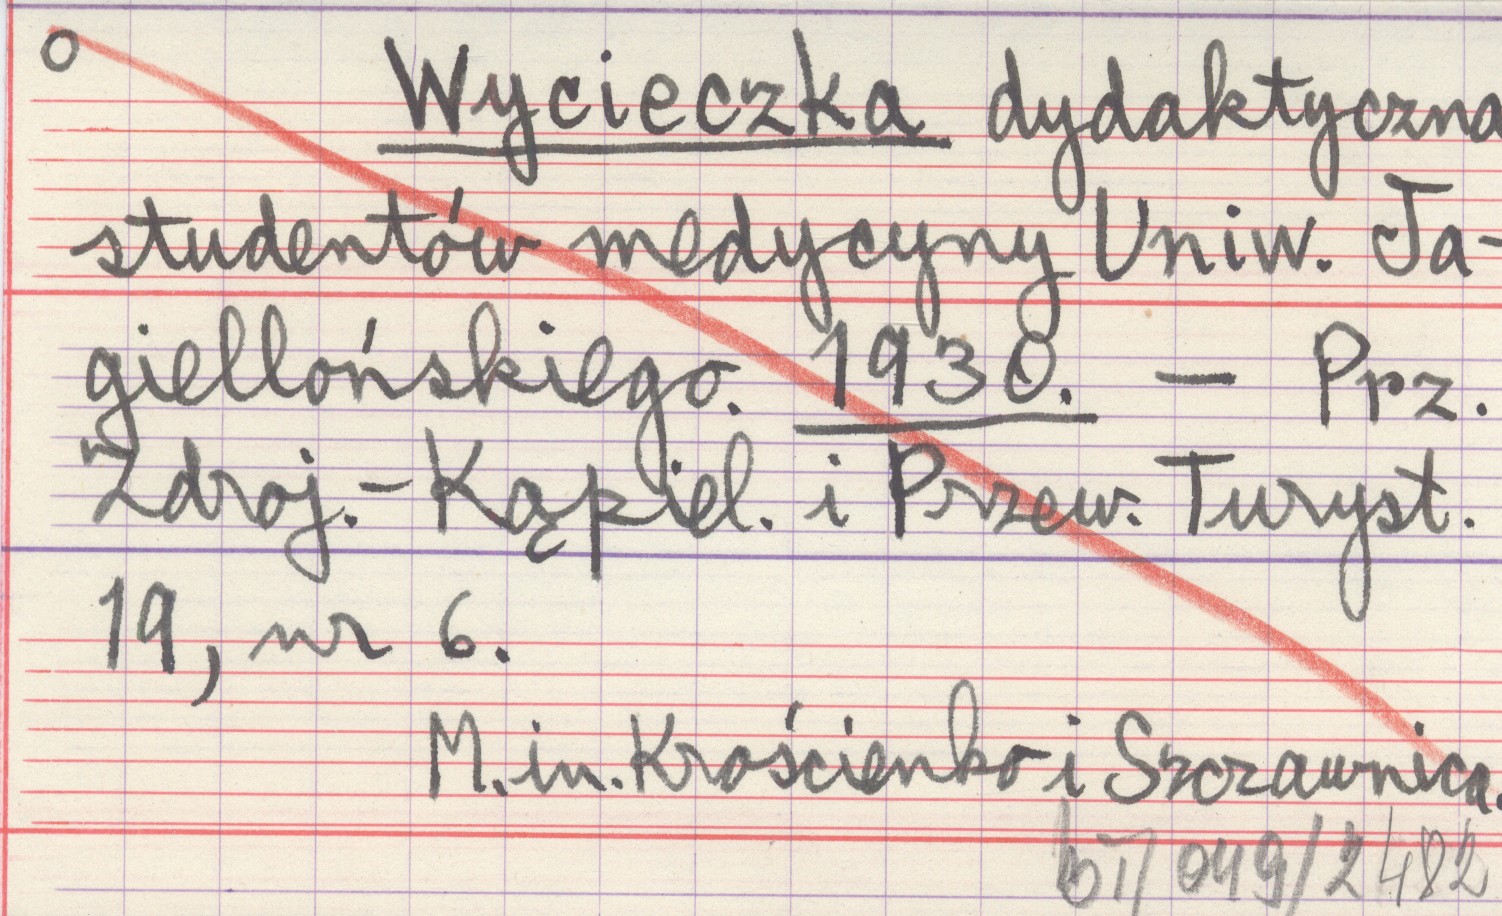 O Wycieczka dydaktyczna
studentów medycyny Uniw. Ja-
giellońskiego. 1930. — Prz.
Zdroj.-Kąpiel. i Przew. Turyst.
19, nr 6.
M. in. Krościenko i Szczawnica.
/049/2482